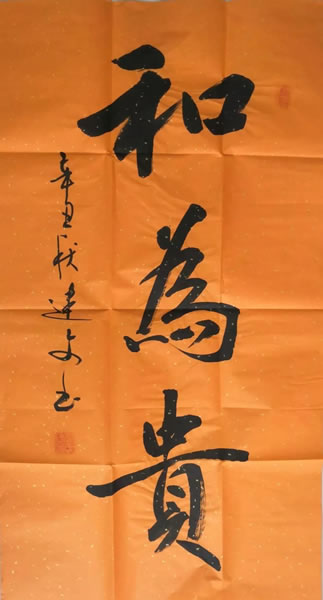 和為貴
辛丑秋達文书